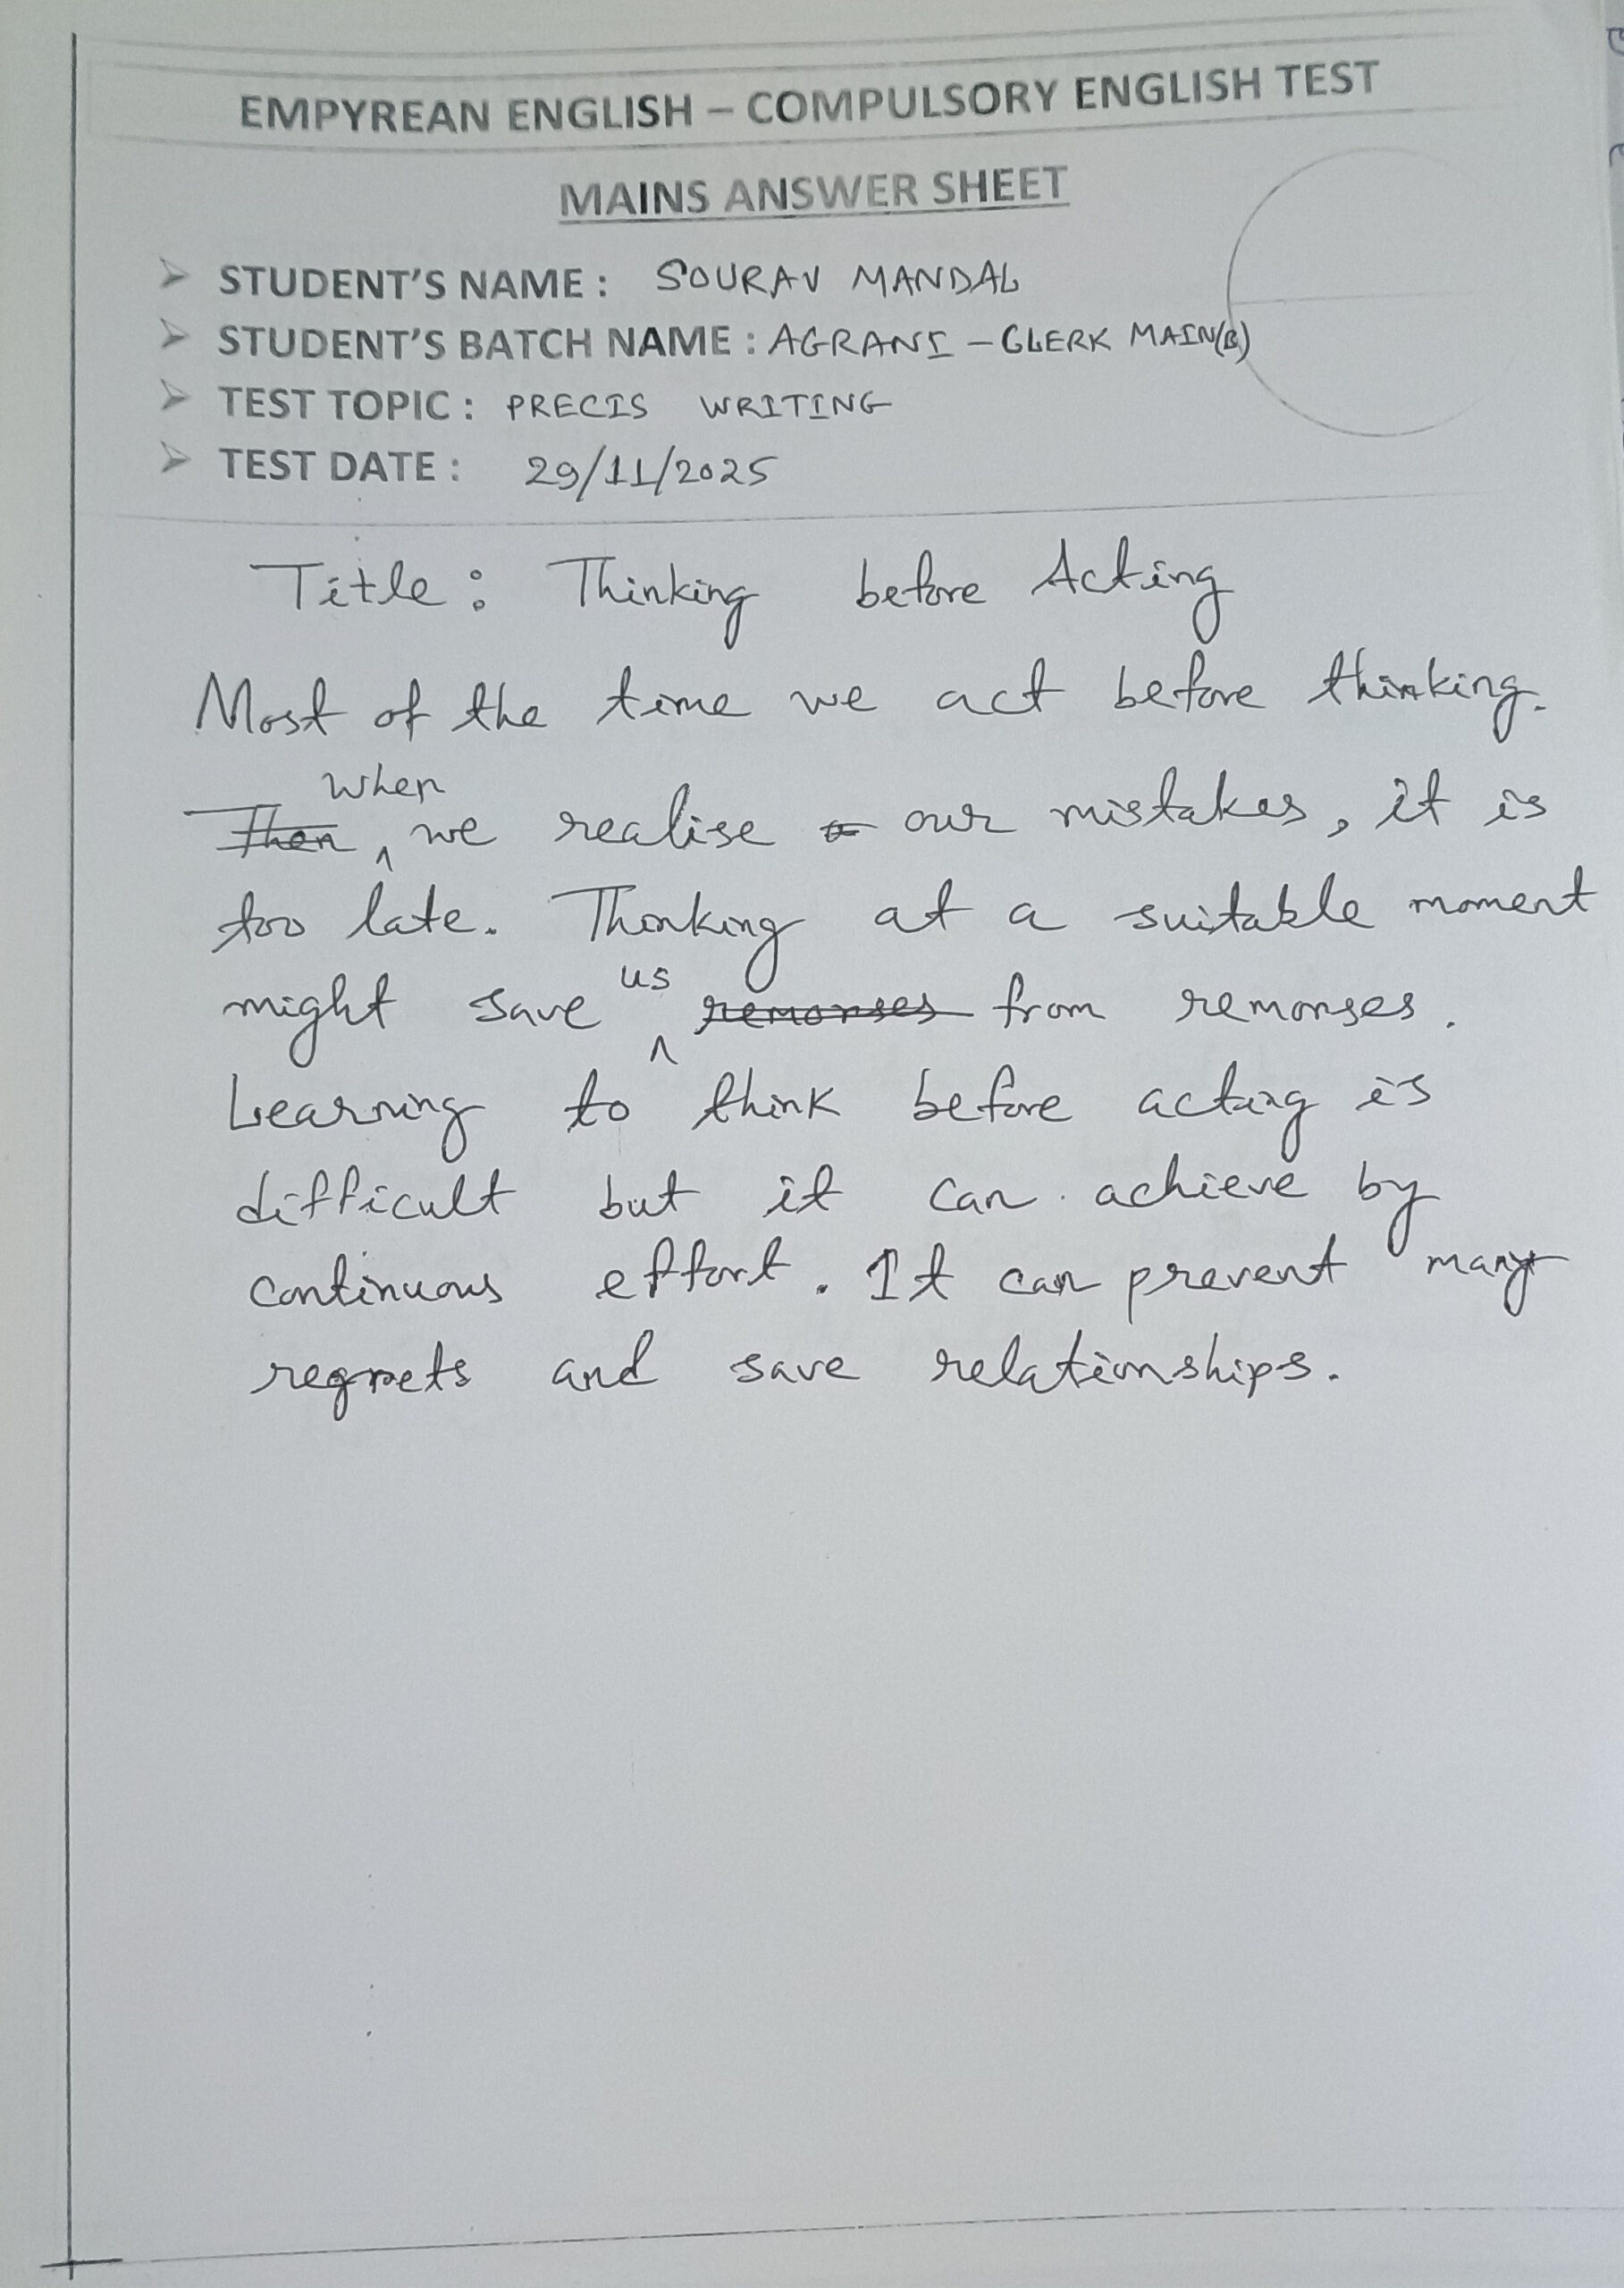 EMPYREAN ENGLISH – COMPULSORY ENGLISH TEST
MAINS ANSWER SHEET
➢ STUDENT'S NAME : SOURAV MANDAL
➢ STUDENT'S BATCH NAME : AGRANI – CLERK MAIN(B)
➢ TEST TOPIC : PRECIS WRITING
➢ TEST DATE : 29/11/2025
Title : Thinking before Acting
Most of the time we act before thinking.
When
Then ^ we realise our mistakes, it is
too late. Thinking at a suitable moment
us
might save ^ remorses from remorses.
Learning to think before acting is
difficult but it can achieve by
continuous effort. It can prevent many
regrets and save relationships.